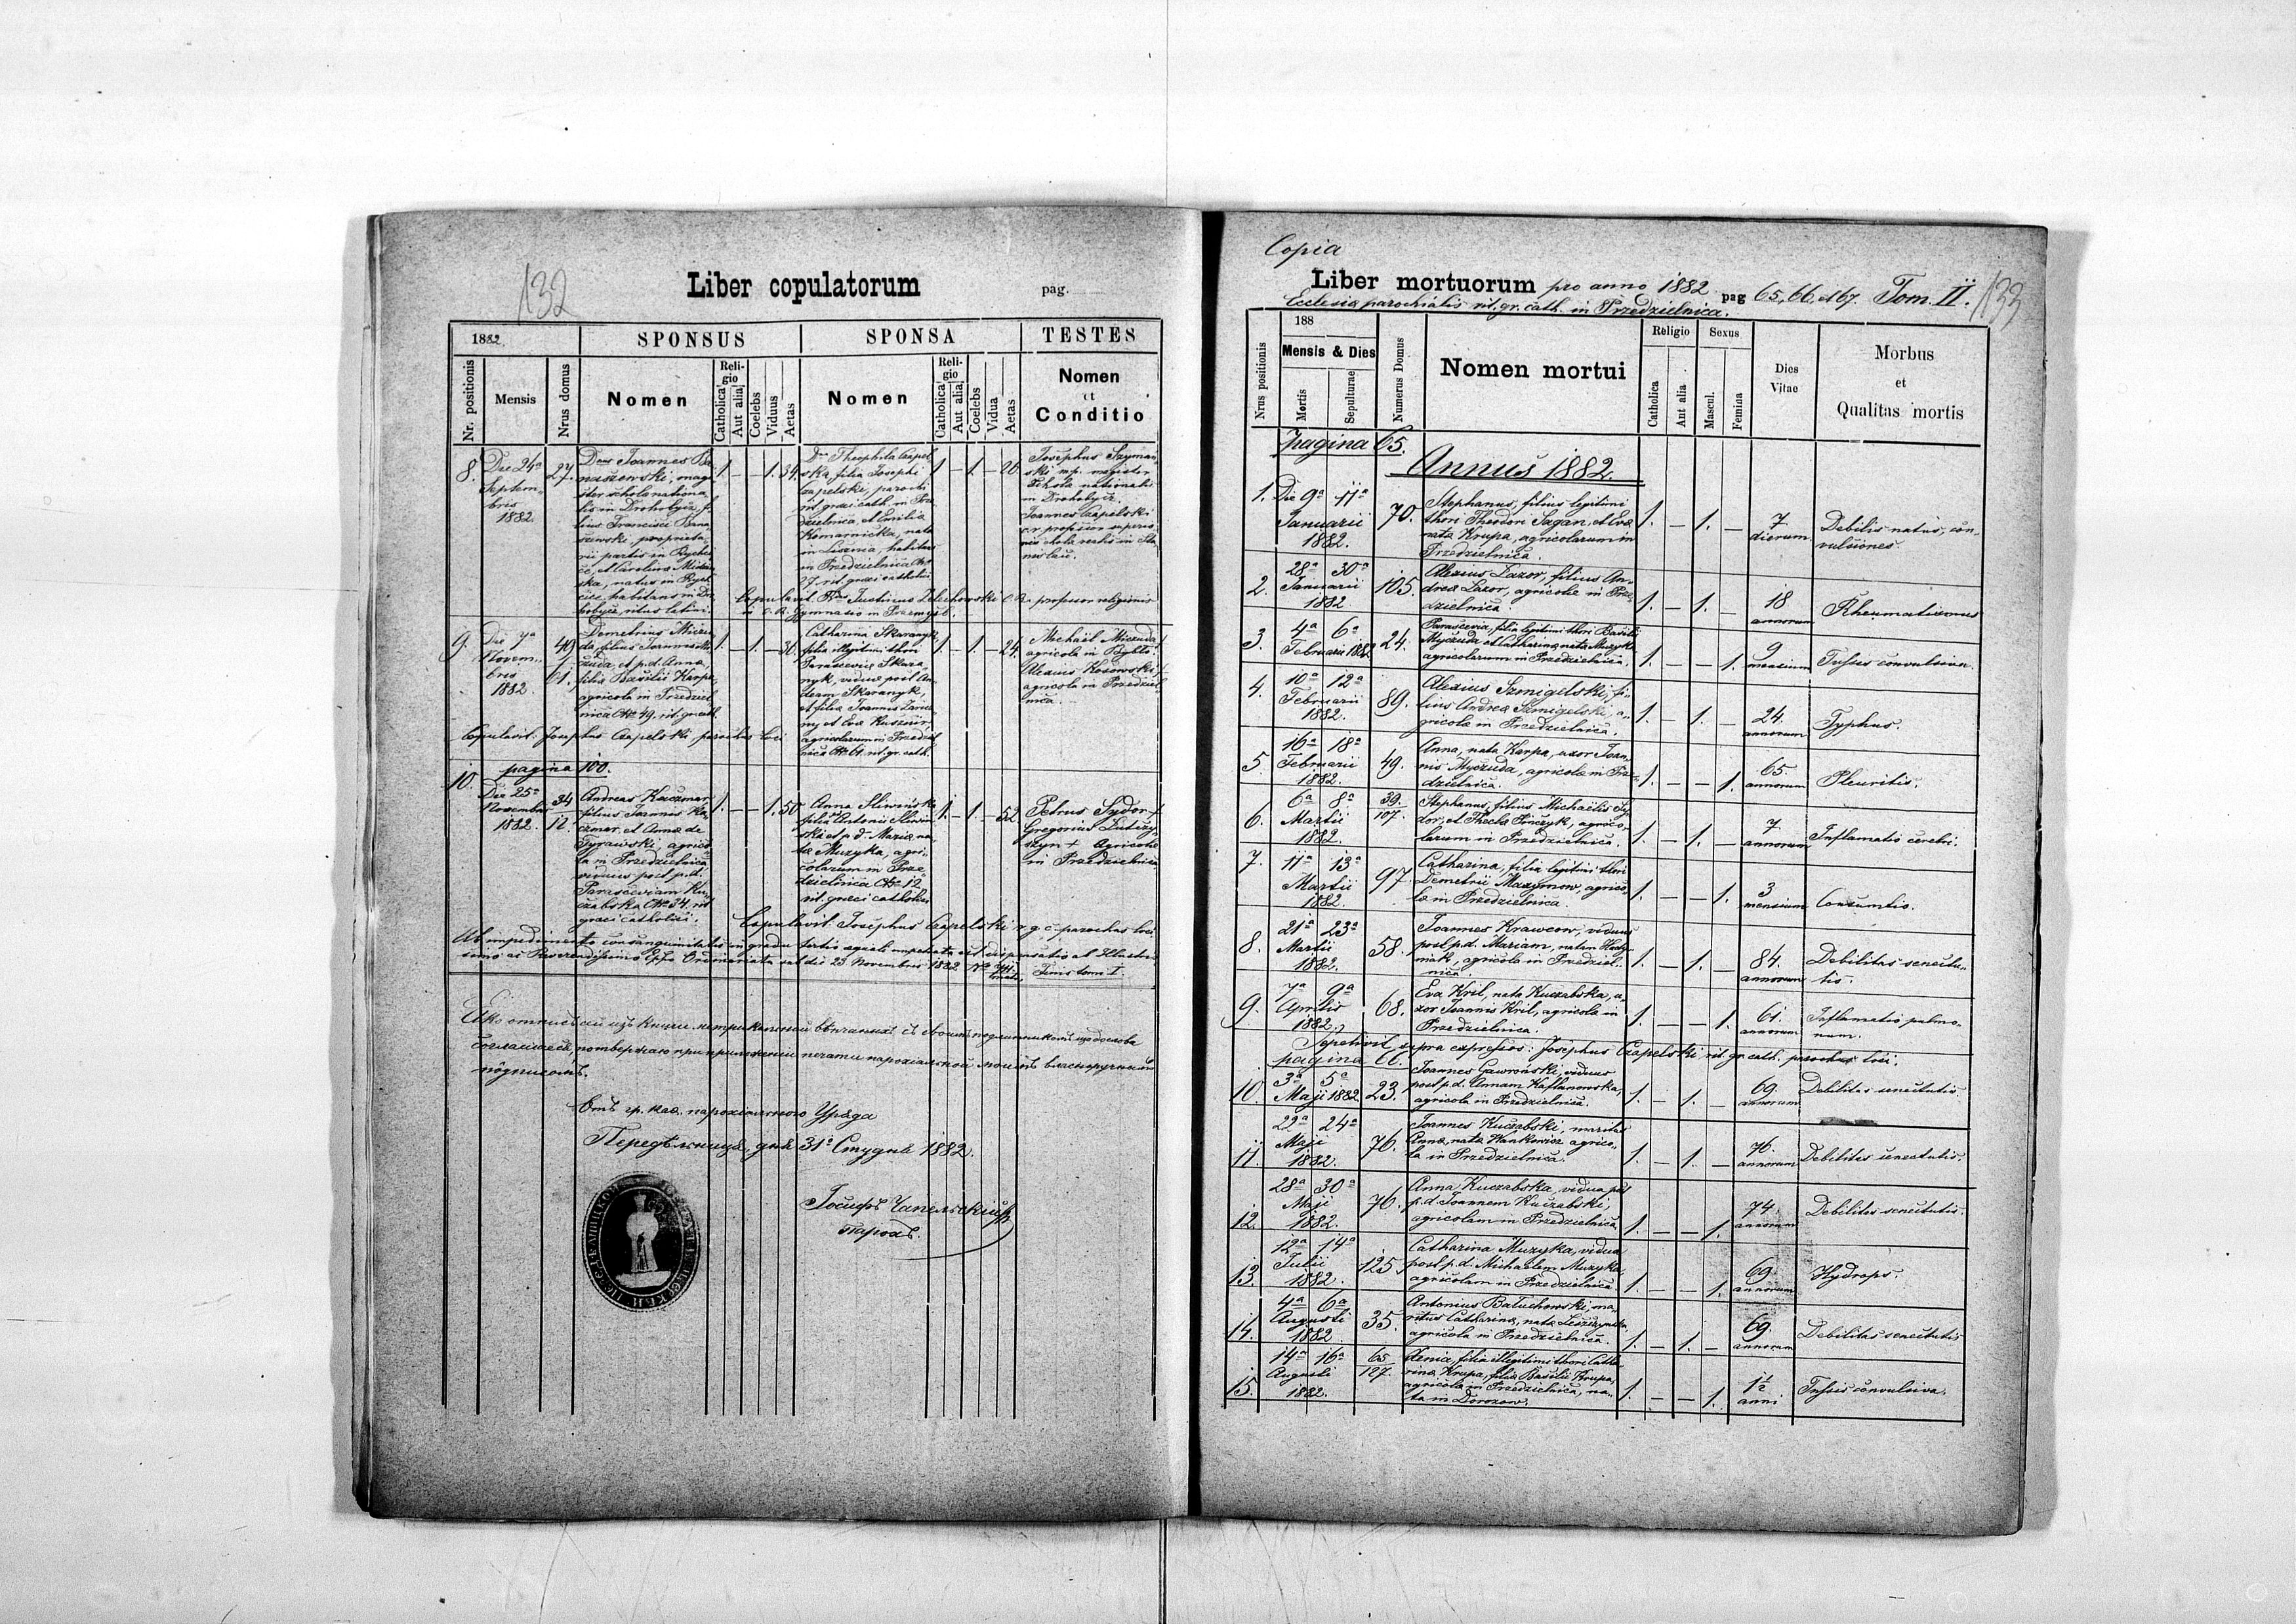 132
Liber copulatorum
pag.
1882.
SPONSUS
SPONSA
TESTES
Nr. positionis
Mensis
Nrus domus
Nomen
Religio
Catholica
Aut alia
Coelebs
Viduus
Aetas
Nomen
Religio
Catholica
Aut alia
Coelebs
Vidua
Aetas
Nomen
et
Conditio
8.
Die 24ª
Septem-
bris
1882.
27.
Dnus Joannes Ba-
naszewski, magi-
ster schola nationa-
lis in Drohobycz, fi-
lius Francisci Bana-
szewski, proprieta-
rii partis in Rychci-
ce, et Carolina
natus in Rych-
cice, habitans in Dro-
hobycz, ritus latini.
1. — — 1. 34.
Dna Theophila Czapel-
ska, filia Josephi
Czapelski, parochi
rit. graeci cath. in Prze-
dzielnica, et Emilia
Komarnicka, nata
in habitans
in Przedzielnica No
27. rit. graeci catholici
1. — 1. — 26
Josephus Szyman-
ski mp. magister
schola nationalis
in Drohobycz.
Joannes Czapelski
professor superio-
ris schola realis in Sta-
nislau.
Copulavit Justinus Zelechowski C. R. professor religionis
in C. R. Gymnasio in Przemysl.
9.
Die 7ª
Novem-
bris
1882.
49
61.
Demetrius Miczu-
da, filius Joannis Mi-
czuda, et p.d. Anna,
filia Basilii Karpa,
agricola in Przedziel-
nica No 49. rit. gr. cath.
1. — 1. — 30.
Catharina Skaranyk,
filia illegitimi thori
Parascevia Skara-
nyk, vidua post An-
dream Skaranyk,
et filia Joannis
et Eva Kusznir,
agricolarum in Przedziel-
nica No 61. rit. gr. cath.
1. — 1. — 24.
Michael Miczuda +
agricola in Rybło.
Alexius Kosowski +
agricola in Przedziel-
nica.
Copulavit: Josephus Czapelski parochus loci
pagina 100.
10.
Die 25ª
Novembris
1882.
34
12.
Andreas Kaczmar,
filius Joannis Ka-
czmar, et Anna de
Tyrawski, agrico-
la in Przedzielnica
viduus post p.d.
Parasceviam Ku-
czabska No 34. rit
graeci catholici.
1. — — 1. 50
Anna Sliwinska
filia Antonii Sliwin-
ski et p.d. Maria na-
ta Muzyka, agri-
colarum in Prze-
dzielnica No 12
rit. graeci catholici
1. — 1. — 52
Petrus Sydor +
Gregorius
+ Agricola
in Przedzielnica
Copulavit Josephus Czapelski r. g. c. parochus loci.
Ab impedimento consanguinitatis in gradu tertio aequali impetrata est dispensatio ab Illustris-
simo ac Reverendissimo Eppo Ordinariatu val die 23. Novembris 1882. No Finis tom. I.
Яко отписъ сей изъ Книги метрикальной вѣнчаныхъ съ своимъ подлинникомъ цѣлослова
согласится, потверждаю при приложеніи печати парохіальной моимъ власноручнымъ
подписомъ.
Отъ гр. кат. парохіального Уряда
Передѣльница, дня 31º Студня 1882.
Іосифъ Чапельскій
парохъ.
Copia
Liber mortuorum pro anno 1882 pag 65, 66 et 67. Tom. II.
133
Ecclesia parochialis rit. gr. cath. in Przedzielnica.
Nrus positionis
188
Mensis & Dies
Mortis
Sepulturae
Numerus Domus
Nomen mortui
Religio
Catholica
Aut alia
Sexus
Mascul.
Femina
Dies
Vitae
Morbus
et
Qualitas mortis
pagina 65.
Annus 1882.
1. Die 9ª 11ª
Januarii
1882.
70.
Stephanus, filius legitimi
thori Theodori Sagan, et Eva
nata Krupa, agricolarum in
Przedzielnica.
1. — 1. —
7
dierum
Debilis natus, con-
vulsiones.
2.
28ª 30ª
Januarii
1882
105.
Alexius Lazor, filius An-
drea Lazor, agricola in Prze-
dzielnica.
1. — 1. —
18
annorum
Rheumatismus
3
4ª 6ª
Februarii 1882
24.
Parascevia, filia legitimi thori Basilii
Myczuda et Catharina, nata Muzyka
agricolarum in Przedzielnica.
1. — — 1.
9
mensium
Tussis convulsiva.
4.
10ª 12ª
Februarii
1882.
89.
Alexius Szmigelski, fi-
lius Andrea Szmigelski, a-
gricola in Przedzielnica.
1. — 1. —
24.
annorum
Typhus.
5
16ª 18ª
Februarii
1882.
49.
Anna, nata Karpa, uxor Joan-
nis Myczuda, agricola in Prze-
dzielnica.
1. — — 1.
65.
annorum
Pleuritis.
6.
6ª 8ª
Martii
1882.
39.
107.
Stephanus, filius Michaelis Sy-
dor, et Thecla Pinczyk, agrico-
larum in Przedzielnica.
1. — 1. —
7
annorum
Inflamatio cerebri.
7.
11ª 13ª
Martii
1882.
97.
Catharina, filia legitimi thori
Demetrii Maxymow, agrico-
la in Przedzielnica.
1. — — 1.
3
mensium
Consumtio.
8.
21ª 23ª
Martii
1882.
58.
Joannes Krawcow, viduus
post p.d. Mariam, natam
agricola in Przedziel-
nica.
1. — 1. —
84.
annorum
Debilitas senectu-
tis.
9.
7ª 9ª
Aprilis
1882.
68.
Eva Kril, nata Kuczabska, u-
xor Joannis Kril, agricola in
Przedzielnica.
1. — — 1.
61.
annorum
Inflamatio pulmo-
num.
Sepelivit supra expressos: Josephus Czapelski rit. gr. cath. parochus loci.
pagina 66.
10.
3ª 5ª
Maji 1882
23.
Joannes Gawronski, viduus
post p.d. Annam Kaflanowska,
agricola in Przedzielnica.
1. — 1. —
69.
annorum
Debilitas senectutis.
11.
22ª 24ª
Maji
1882.
76.
Joannes Kuczabski, maritus
Anna, nata Hankewicz agrico-
la in Przedzielnica.
1. — 1. —
76.
annorum
Debilitas senectutis.
12.
28ª 30ª
Maji
1882.
76.
Anna Kuczabska, vidua post
p.d. Joannem Kuczabski,
agricolam in Przedzielnica
1. — — 1.
74.
annorum
Debilitas senectutis.
13.
12ª 14ª
Julii
1882.
125.
Catharina Muzyka, vidua
post p.d. Michaelem Muzyka
agricolam in Przedzielnica.
1. — — 1.
69
annorum
Hydrops.
14.
4ª 6ª
Augusti
1882
35.
Antonius Batuchowski, ma-
ritus Catharina, nata Leszczynska,
agricola in Przedzielnica.
1. — 1. —
69.
annorum
Debilitas senectutis
15.
14ª 16ª
Augusti
1882.
65
127.
Xenia, filia illegitimi thori Catha-
rina Krupa, filia Basilii Krupa,
agricola in Przedzielnica, na-
ta in Dorozow.
1. — — 1.
1½
anni.
Tussis convulsiva.